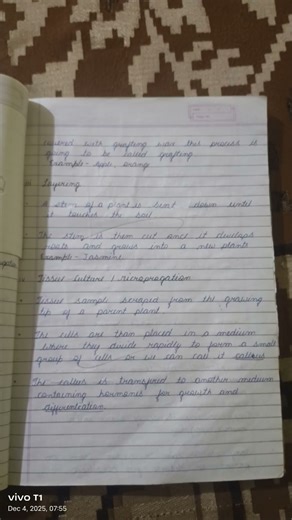 covered with grafting wax this process is
going to be called grafting
Example - apple, orang
Layering
A stem of a plant is bent down until
it touches the soil
The stem is then cut once it develops
roots and grows into a new plants
Example - Jasmine
Tissue Culture / Micropropagation
Tissue sample scraped from the growing
tip of a parent plant
The cells are than placed in a medium
where they divide rapidly to form a small
group of cells or we can call it callus
The callus is transfered to another medium
containing hormones for growth and
differentiation
vivo T1
Dec 4, 2025, 07:55